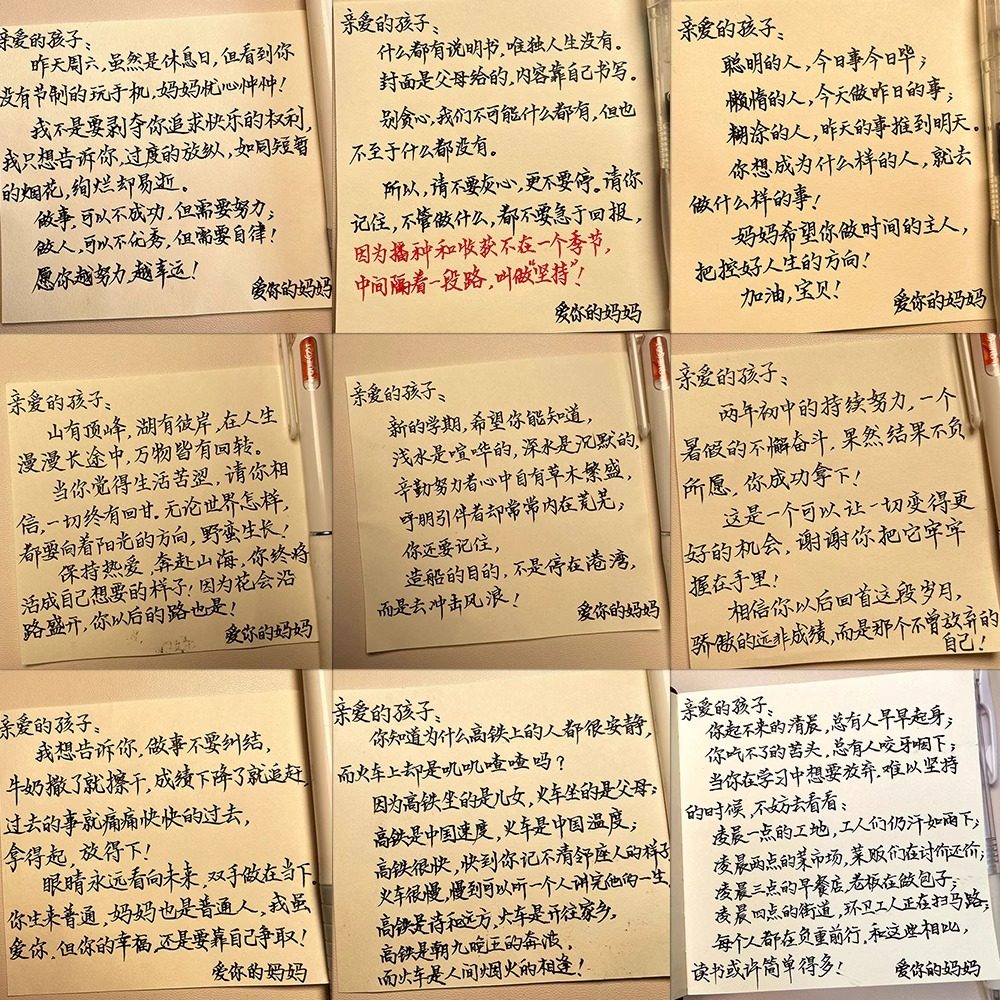 亲爱的孩子：
昨天周六，虽然是休息日，但看到你
没有节制的玩手机，妈妈忧心忡忡！
我不是要剥夺你追求快乐的权利，
我只想告诉你，过度的放纵，如同短暂
的烟花，绚烂却易逝。
做事，可以不成功，但需要努力；
做人，可以不优秀，但需要自律！
愿你越努力，越幸运！
爱你的妈妈
亲爱的孩子：
什么都有说明书，唯独人生没有。
封面是父母给的，内容靠自己书写。
别贪心，我们不可能什么都有，但也
不至于什么都没有。
所以，请不要灰心，更不要停。请你
记住，不管做什么，都不要急于回报，
因为播种和收获不在一个季节，
中间隔着一段路，叫做“坚持”！
爱你的妈妈
亲爱的孩子：
聪明的人，今日事今日毕；
懒惰的人，今天做昨日的事；
糊涂的人，昨天的事推到明天。
你想成为什么样的人，就去
做什么样的事！
妈妈希望你做时间的主人，
把控好人生的方向！
加油，宝贝！
爱你的妈妈
亲爱的孩子：
山有顶峰，湖有彼岸，在人生
漫漫长途中，万物皆有回转。
当你觉得生活苦涩，请你相
信，一切终有回甘，无论世界怎样，
都要向着阳光的方向，野蛮生长！
保持热爱，奔赴山海，你终将
活成自己想要的样子！因为花会沿
路盛开，你以后的路也是！
爱你的妈妈
亲爱的孩子：
新的学期，希望你能知道，
浅水是喧哗的，深水是沉默的，
辛勤努力者心中自有草木繁盛，
呼朋引伴者却常常内在荒芜；
你还要记住，
造船的目的，不是停在港湾，
而是去冲击风浪！
爱你的妈妈
亲爱的孩子：
两年初中的持续努力，一个
暑假的不懈奋斗，果然结果不负
所愿，你成功拿下！
这是一个可以让一切变得更
好的机会，谢谢你把它牢牢
握在手里！
相信你以后回首这段岁月，
骄傲的远非成绩，而是那个不曾放弃的
自己！
亲爱的孩子：
我想告诉你，做事不要纠结，
牛奶撒了就擦干，成绩下降了就追赶，
过去的事就痛痛快快的过去，
拿得起，放得下！
眼睛永远看向未来，双手做在当下，
你生来普通，妈妈也是普通人，我虽
爱你，但你的幸福，还是要靠自己争取！
爱你的妈妈
亲爱的孩子：
你知道为什么高铁上的人都很安静，
而火车上却是叽叽喳喳吗？
因为高铁坐的是儿女，火车坐的是父母；
高铁是中国速度，火车是中国温度；
高铁很快，快到你记不清邻座人的样子
火车很慢，慢到可以听一个人讲完他的一生
高铁是诗和远方，火车是开往家乡，
高铁是朝九晚五的奔波，
而火车是人间烟火的相逢！
亲爱的孩子：
你起不来的清晨，总有人早早起身；
你吃不了的苦头，总有人咬牙咽下；
当你在学习中想要放弃，难以坚持
的时候，不妨去看看：
凌晨一点的工地，工人们仍汗如雨下；
凌晨两点的菜市场，菜贩们在讨价还价；
凌晨三点的早餐店，老板在做包子；
凌晨四点的街道，环卫工人正在扫马路；
每个人都在负重前行，和这些相比，
读书或许简单得多！
爱你的妈妈